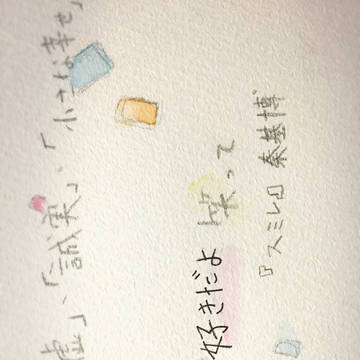 虚」、「誠実」、「小さな幸せ」
好きだよ 笑って
『スミレ』秦基博